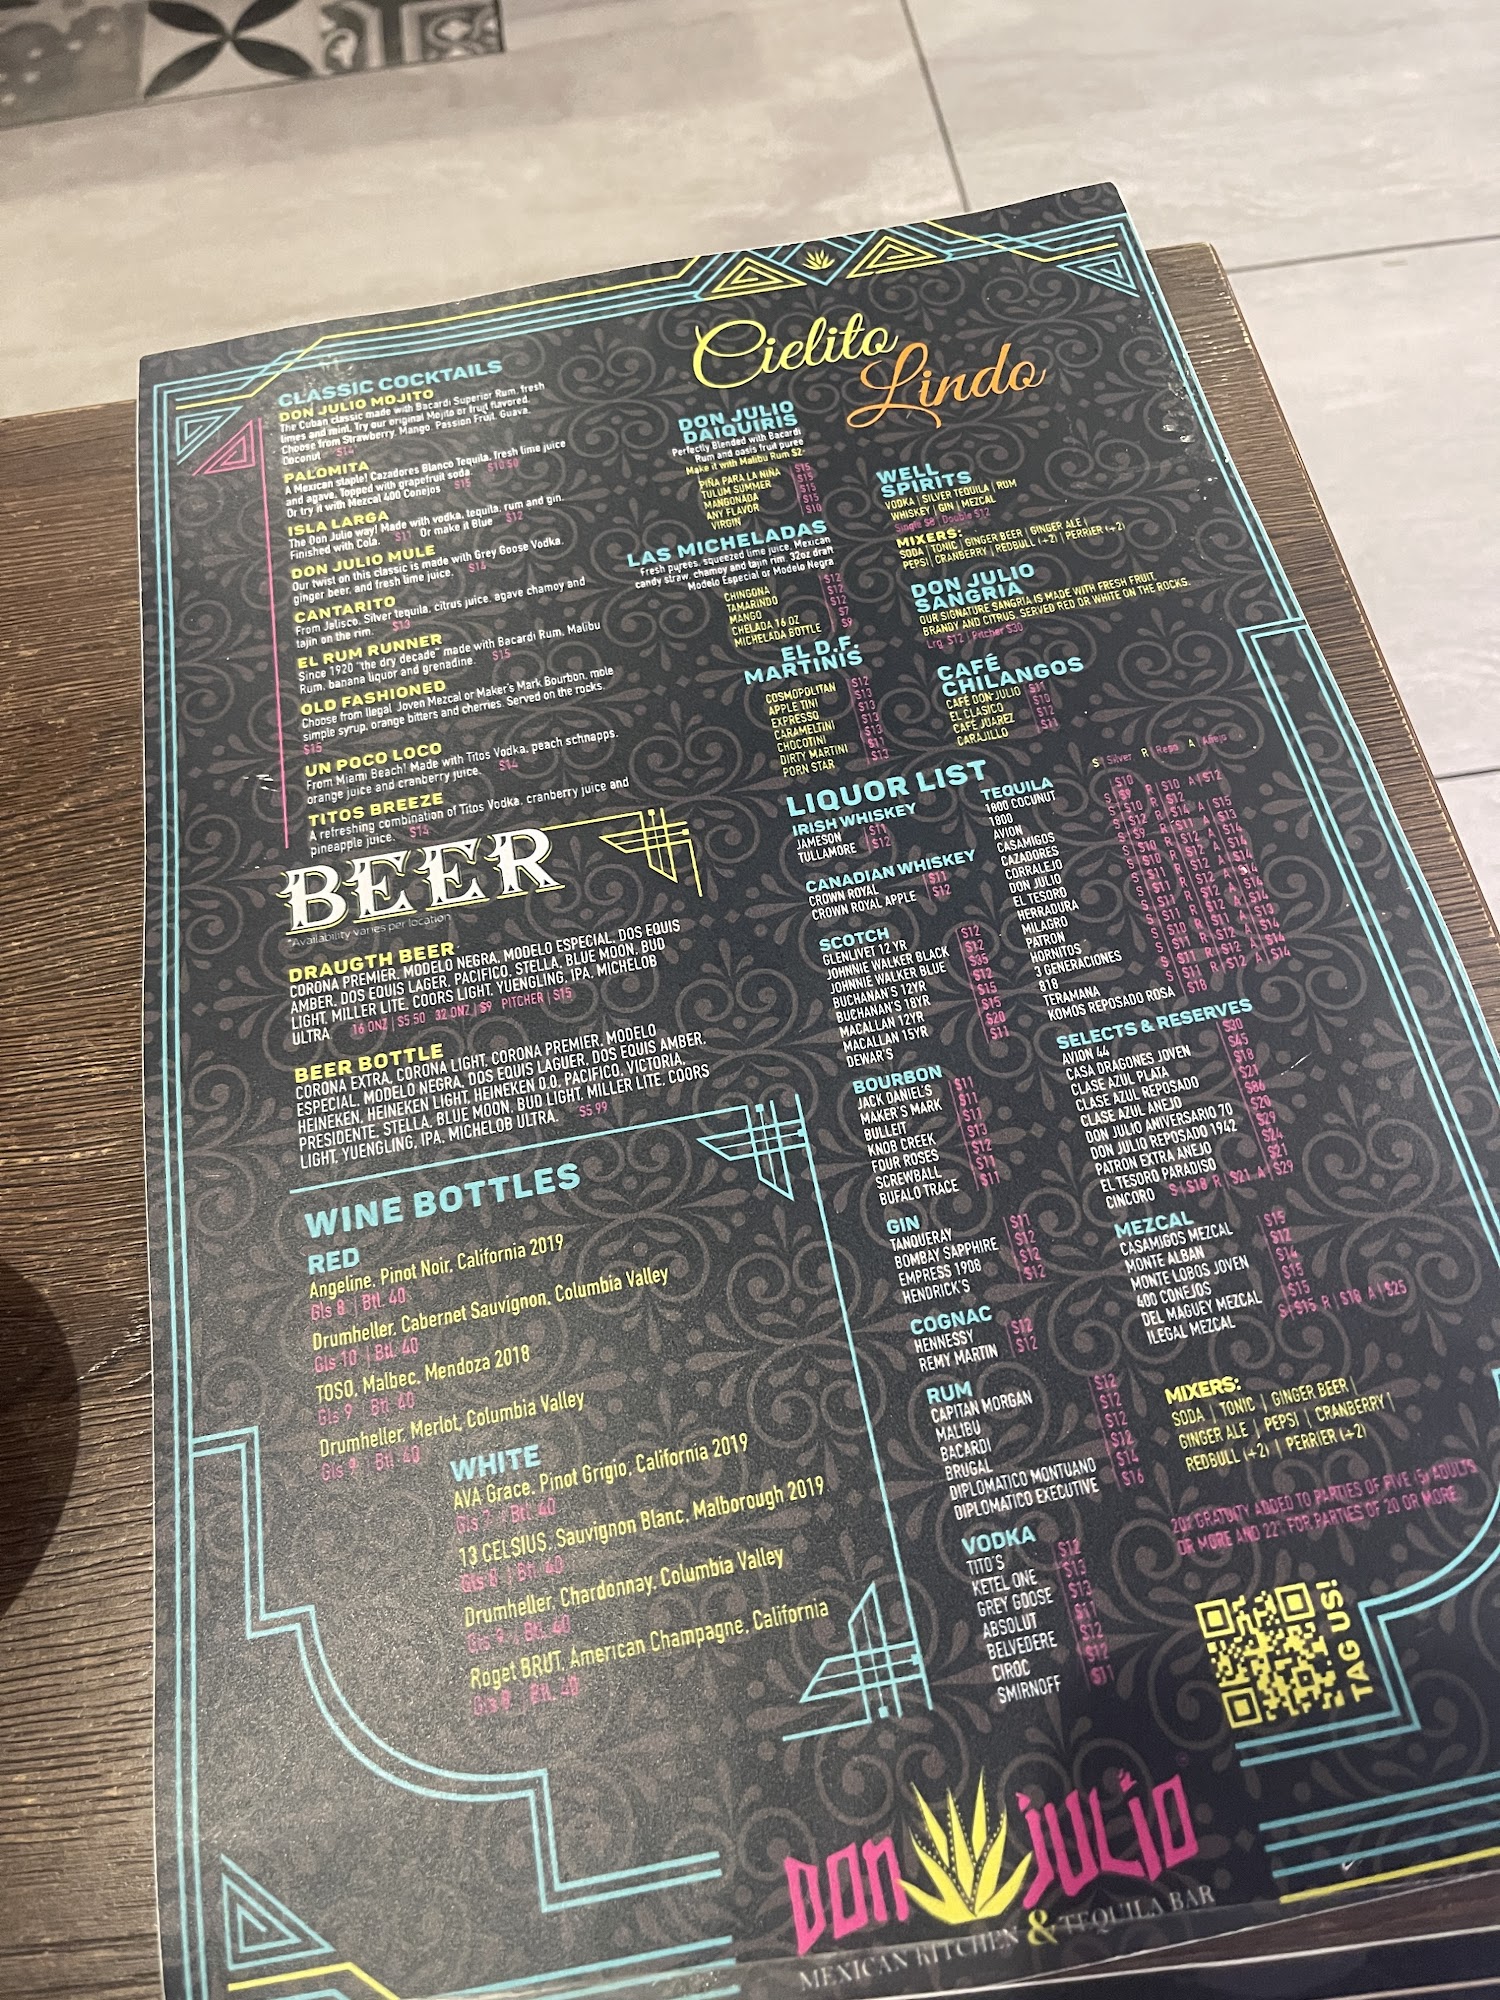 Cielito
Lindo
CLASSIC COCKTAILS
DON JULIO MOJITO
The Cuban classic made with Bacardi Superior Rum, fresh
limes and mint. Try our original Mojito or fruit flavored.
Choose from Strawberry, Mango, Passion Fruit, Guava,
Coconut $14
PALOMITA $10.50
A Mexican staple! Cazadores Blanco Tequila, fresh lime juice
and agave. Topped with grapefruit soda.
Or try it with Mezcal 400 Conejos $15
ISLA LARGA
The Don Julio way! Made with vodka, tequila, rum and gin.
Finished with Cola. $11 Or make it Blue $12
DON JULIO MULE
Our twist on this classic is made with Grey Goose Vodka,
ginger beer, and fresh lime juice. $14
CANTARITO
From Jalisco, Silver tequila, citrus juice, agave chamoy and
tajin on the rim. $13
EL RUM RUNNER
Since 1920 "the dry decade" made with Bacardi Rum, Malibu
Rum, banana liquor and grenadine. $15
OLD FASHIONED
Choose from Ilegal Joven Mezcal or Maker's Mark Bourbon, mole
simple syrup, orange bitters and cherries. Served on the rocks.
$15
UN POCO LOCO
From Miami Beach! Made with Titos Vodka, peach schnapps,
orange juice and cranberry juice. $14
TITOS BREEZE
A refreshing combination of Titos Vodka, cranberry juice and
pineapple juice. $14
BEER
*Availability varies per location
DRAUGTH BEER
CORONA PREMIER, MODELO NEGRA, MODELO ESPECIAL, DOS EQUIS
AMBER, DOS EQUIS LAGER, PACIFICO, STELLA, BLUE MOON, BUD
LIGHT, MILLER LITE, COORS LIGHT, YUENGLING, IPA, MICHELOB
ULTRA 16 ONZ | $5 50 32 ONZ | $9 PITCHER | $15
BEER BOTTLE
CORONA EXTRA, CORONA LIGHT, CORONA PREMIER, MODELO
ESPECIAL, MODELO NEGRA, DOS EQUIS LAGUER, DOS EQUIS AMBER,
HEINEKEN, HEINEKEN LIGHT, HEINEKEN 0.0, PACIFICO, VICTORIA,
PRESIDENTE, STELLA, BLUE MOON, BUD LIGHT, MILLER LITE, COORS
LIGHT, YUENGLING, IPA, MICHELOB ULTRA. $5 99
WINE BOTTLES
RED
Angeline, Pinot Noir, California 2019
Gls 8 | Btl. 40
Drumheller, Cabernet Sauvignon, Columbia Valley
Gls 10 | Btl. 40
TOSO, Malbec, Mendoza 2018
Gls 9 | Btl. 40
Drumheller, Merlot, Columbia Valley
Gls 9 | Btl. 40
WHITE
AVA Grace, Pinot Grigio, California 2019
Gls 7 | Btl. 40
13 CELSIUS, Sauvignon Blanc, Malborough 2019
Gls 8 | Btl. 40
Drumheller, Chardonnay, Columbia Valley
Gls 9 | Btl. 40
Roget BRUT, American Champagne, California
Gls 8 | Btl. 40
DON JULIO
DAIQUIRIS
Perfectly Blended with Bacardi
Rum and oasis fruit puree
Make it with Malibu Rum $2
PIÑA PARA LA NIÑA $15
TULUM SUMMER $15
MANGONADA $15
ANY FLAVOR $15
VIRGIN $10
LAS MICHELADAS
Fresh purees, squeezed lime juice, Mexican
candy straw, chamoy and tajin rim. 32oz draft
Modelo Especial or Modelo Negra
CHINGONA $12
TAMARINDO $12
MANGO $12
CHELADA 16 OZ $7
MICHELADA BOTTLE $9
EL D.F.
MARTINIS
COSMOPOLITAN $12
APPLE TINI $13
EXPRESSO $13
CARAMELTINI $13
CHOCOTINI $13
DIRTY MARTINI $11
PORN STAR $13
WELL
SPIRITS
VODKA | SILVER TEQUILA | RUM
WHISKEY | GIN | MEZCAL
Single $8 | Double $12
MIXERS:
SODA | TONIC | GINGER BEER | GINGER ALE |
PEPSI | CRANBERRY | REDBULL (+2) | PERRIER (+2)
DON JULIO
SANGRIA
OUR SIGNATURE SANGRIA IS MADE WITH FRESH FRUIT,
BRANDY AND CITRUS. SERVED RED OR WHITE ON THE ROCKS.
Lrg. $12 | Pitcher $30
CAFÉ
CHILANGOS
CAFÉ DON JULIO $11
EL CLASICO $10
CAFÉ JUAREZ $12
CARAJILLO $11
LIQUOR LIST
IRISH WHISKEY
JAMESON $11
TULLAMORE $12
CANADIAN WHISKEY
CROWN ROYAL $11
CROWN ROYAL APPLE $12
SCOTCH
GLENLIVET 12 YR $12
JOHNNIE WALKER BLACK $12
JOHNNIE WALKER BLUE $35
BUCHANAN'S 12YR $12
BUCHANAN'S 18YR $15
MACALLAN 12YR $15
MACALLAN 15YR $20
DEWAR'S $11
BOURBON
JACK DANIEL'S $11
MAKER'S MARK $11
BULLEIT $11
KNOB CREEK $13
FOUR ROSES $12
SCREWBALL $11
BUFALO TRACE $11
GIN
TANQUERAY $11
BOMBAY SAPPHIRE $12
EMPRESS 1908 $12
HENDRICK'S $12
COGNAC
HENNESSY $12
REMY MARTIN $12
RUM
CAPITAN MORGAN $12
MALIBU $12
BACARDI $12
BRUGAL $12
DIPLOMATICO MONTUANO $14
DIPLOMATICO EXECUTIVE $16
VODKA
TITO'S $12
KETEL ONE $13
GREY GOOSE $13
ABSOLUT $11
BELVEDERE $12
CIROC $12
SMIRNOFF $11
TEQUILA S | Silver R | Repo A | Añejo
1800 COCUNUT $10
1800
AVION
CASAMIGOS
CAZADORES
CORRALEJO
DON JULIO
EL TESORO
HERRADURA
MILAGRO
PATRON
HORNITOS
3 GENERACIONES
818
TERAMANA
KOMOS REPOSADO ROSA $18
SELECTS & RESERVES
AVION 44 $30
CASA DRAGONES JOVEN $45
CLASE AZUL PLATA $18
CLASE AZUL REPOSADO $21
CLASE AZUL ANEJO $86
DON JULIO ANIVERSARIO 70 $20
DON JULIO REPOSADO 1942 $29
PATRON EXTRA ANEJO $24
EL TESORO PARADISO $21
CINCORO S | $18 R | $21 A | $29
MEZCAL
CASAMIGOS MEZCAL $15
MONTE ALBAN $12
MONTE LOBOS JOVEN $14
400 CONEJOS $15
DEL MAGUEY MEZCAL $15
ILEGAL MEZCAL S | $15 R | $18 A | $25
MIXERS:
SODA | TONIC | GINGER BEER |
GINGER ALE | PEPSI | CRANBERRY |
REDBULL (+2) | PERRIER (+2)
20% GRATUITY ADDED TO PARTIES OF FIVE (5) ADULTS
OR MORE AND 22% FOR PARTIES OF 20 OR MORE
TAG US!
DON JULIO
MEXICAN KITCHEN & TEQUILA BAR